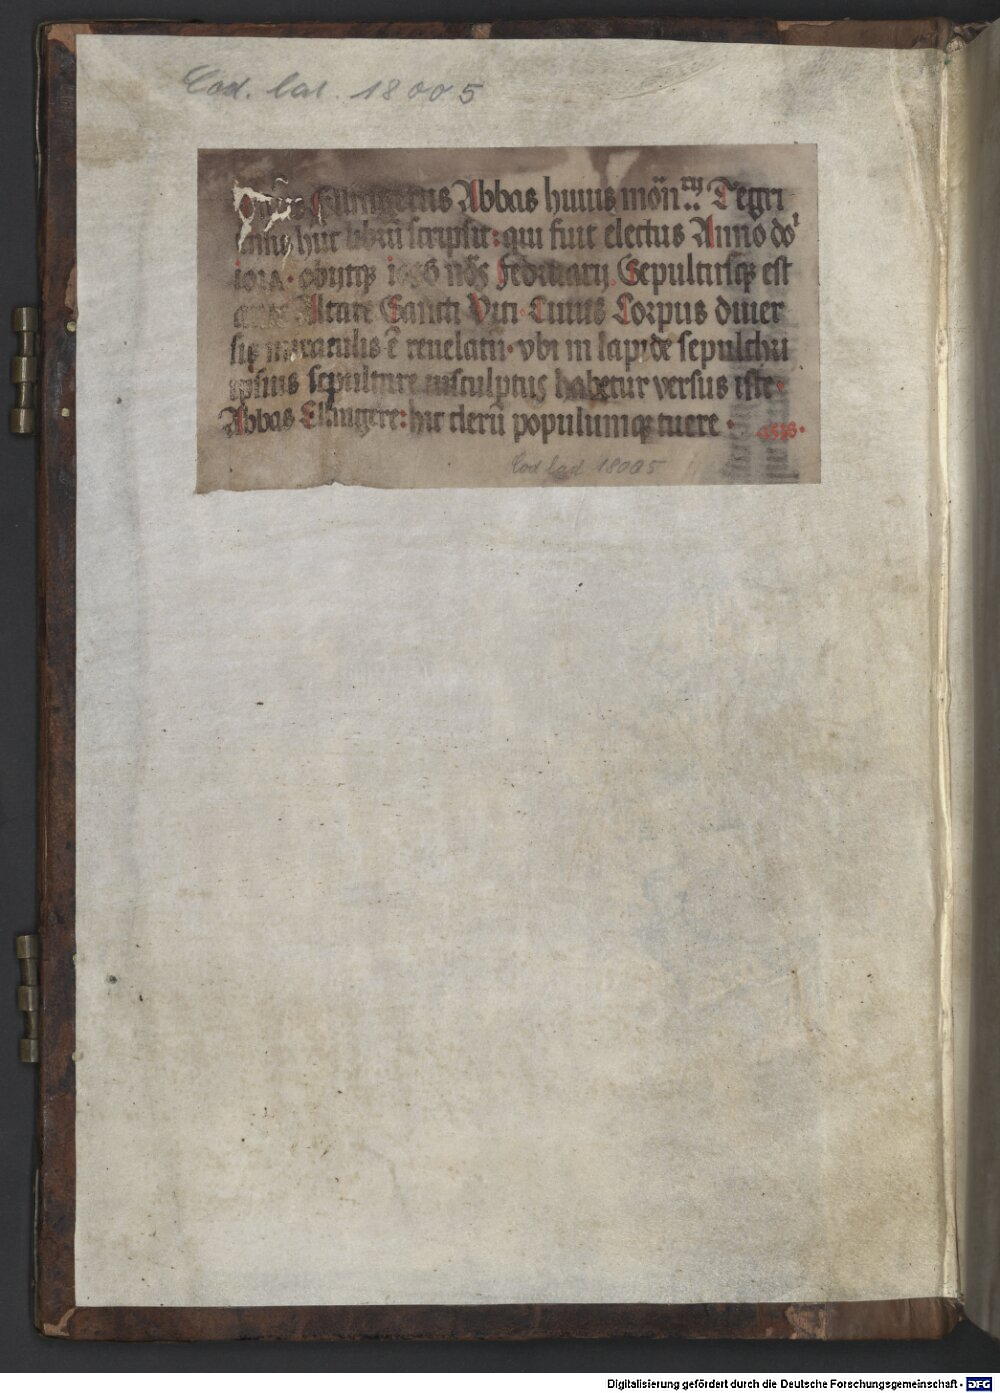 Cod. lat. 18005
Abbas huius mon̄rij Tegri
hūc librū scripsit: qui fuit electus Anno dōi
obijtq; 1056 nōs februarij. Sepultusq; est
ante Altare Sancti Viti. Cuius Corpus diuer
sis miraculis ē reuelatū. vbi in lapide sepulchri
ipsius sepulture insculptus habetur versus iste.
Abbas Ellingere: hic clerū populumq; tuere.
Cod. lat. 18005
Digitalisierung gefördert durch die Deutsche Forschungsgemeinschaft - DFG